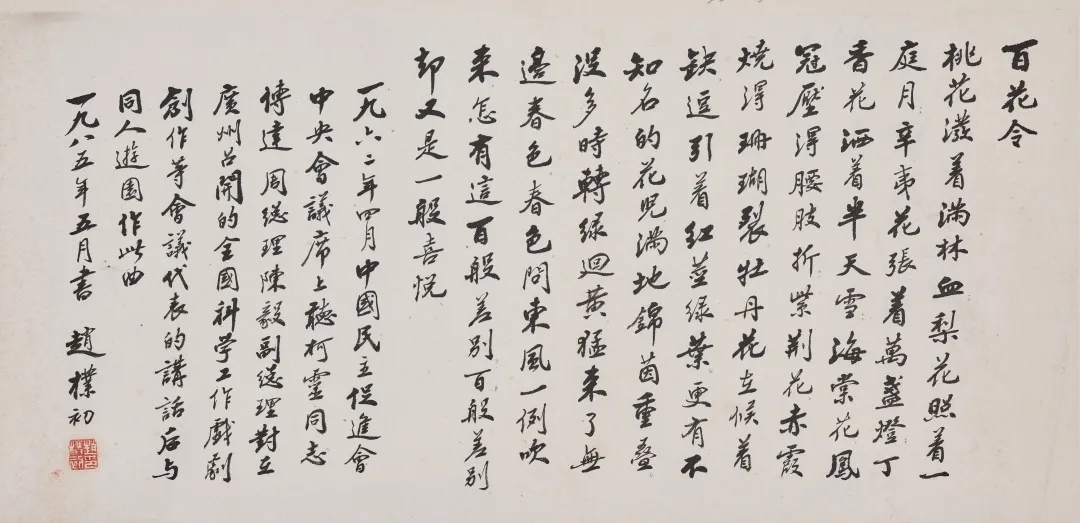 百花令
桃花潑着滿林血梨花照着一
庭月辛夷花張着萬盞燈丁
香花洒着半天雪海棠花鳳
冠壓得腰肢折紫荆花赤霞
燒得珊瑚裂牡丹花在候着
缺逗引着紅莖綠葉更有不
知名的花児滿地錦茵重疊
没多時轉綠迴黃猛来了無
邊春色春色問東風一例吹
来怎有這百般差别百般差别
却又是一般喜悦
一九六二年四月中國民主促進會
中央會議席上聽柯靈同志
傳達周總理陳毅副總理對在
廣州召開的全國科学工作戲劇
創作等會議代表的講話后与
同人遊園作此曲
一九八五年五月書 趙樸初